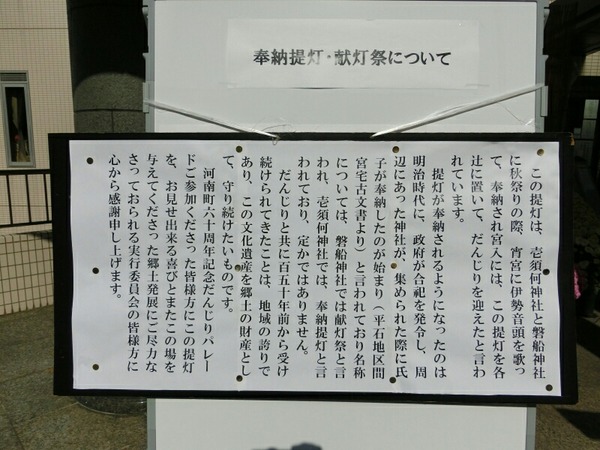 奉納提灯・献灯祭について
この提灯は、壱須何神社と磐船神社
に秋祭りの際、宵宮に伊勢音頭を歌っ
て、奉納され宮入には、この提灯を各
辻に置いて、だんじりを迎えたと言わ
れています。
提灯が奉納されるようになったのは
明治時代に、政府が合祀を発令し、周
辺にあった神社が、集められた際に氏
子が奉納したのが始まり（平石地区間
宮宅古文書より）と言われており名称
については、磐船神社では献灯祭と言
われ、壱須何神社では、奉納提灯と言
われており、定かではありません。
だんじりと共に百五十年前から受け
続けられてきたことは、地域の誇りで
あり、この文化遺産を郷土の財産とし
て、守り続けたいものです。
河南町六十周年記念だんじりパレー
ドご参加くださった皆様方にこの提灯
を、お見せ出来る喜びとまたこの場を
与えてくださった郷土発展にご尽力な
さっておられる実行委員会の皆様方に
心から感謝申し上げます。